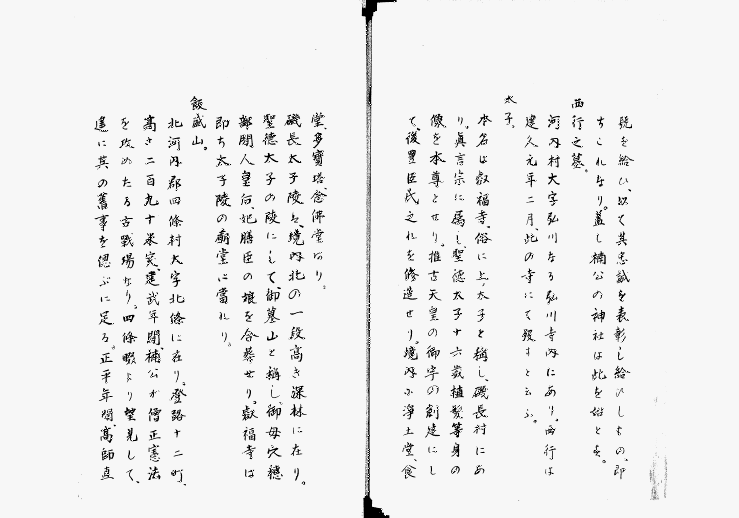 號を給ひ、以て其忠誠を表彰し給ひしもの、即
ちこれなり。蓋し楠公の神社は此を始とす。
西行之墓。
河内村大字弘川なる弘川寺内にあり。西行は
建久元年二月、此の寺にて歿すと云ふ。
太子。
本名は叡福寺、俗に上ノ太子と稱し、磯長村にあ
り。眞言宗に属し、聖徳太子十六歳植髪等身の
像を本尊とせり。推古天皇の御宇の創建にし
て、後豊臣氏之れを修造せり。境内に浄土堂、食
堂、多寶塔、念佛堂あり。
磯長太子陵は、境内北の一段高き深林に在り。
聖徳太子の陵にして、御墓山と稱し、御母穴穂
部間人皇后、妃膳臣の娘を合葬せり。叡福寺は
即ち太子陵の廟堂に當れり。
飯盛山。
北河内郡四條村大字北條に在り。登路十二町、
高さ二百九十米突、建武年間、楠公が僧正憲法
を攻めたる古戰場なり。四條畷より望見して、
遙に其の舊事を偲ぶに足る。正平年間、高師直